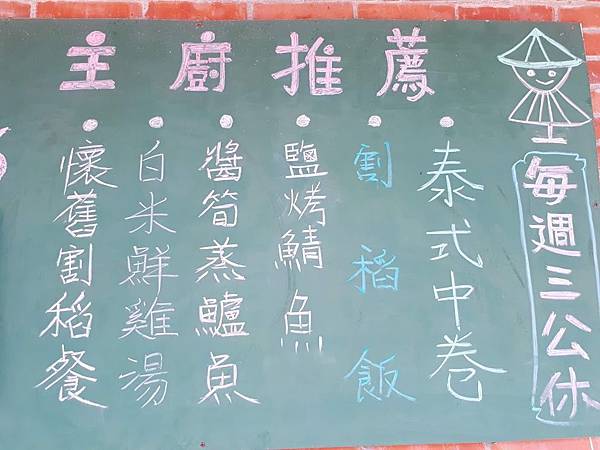 主廚推薦
每週三公休
泰式中卷
割稻飯
鹽烤鯖魚
醬筍蒸鱸魚
白米鮮雞湯
懷舊割稻餐